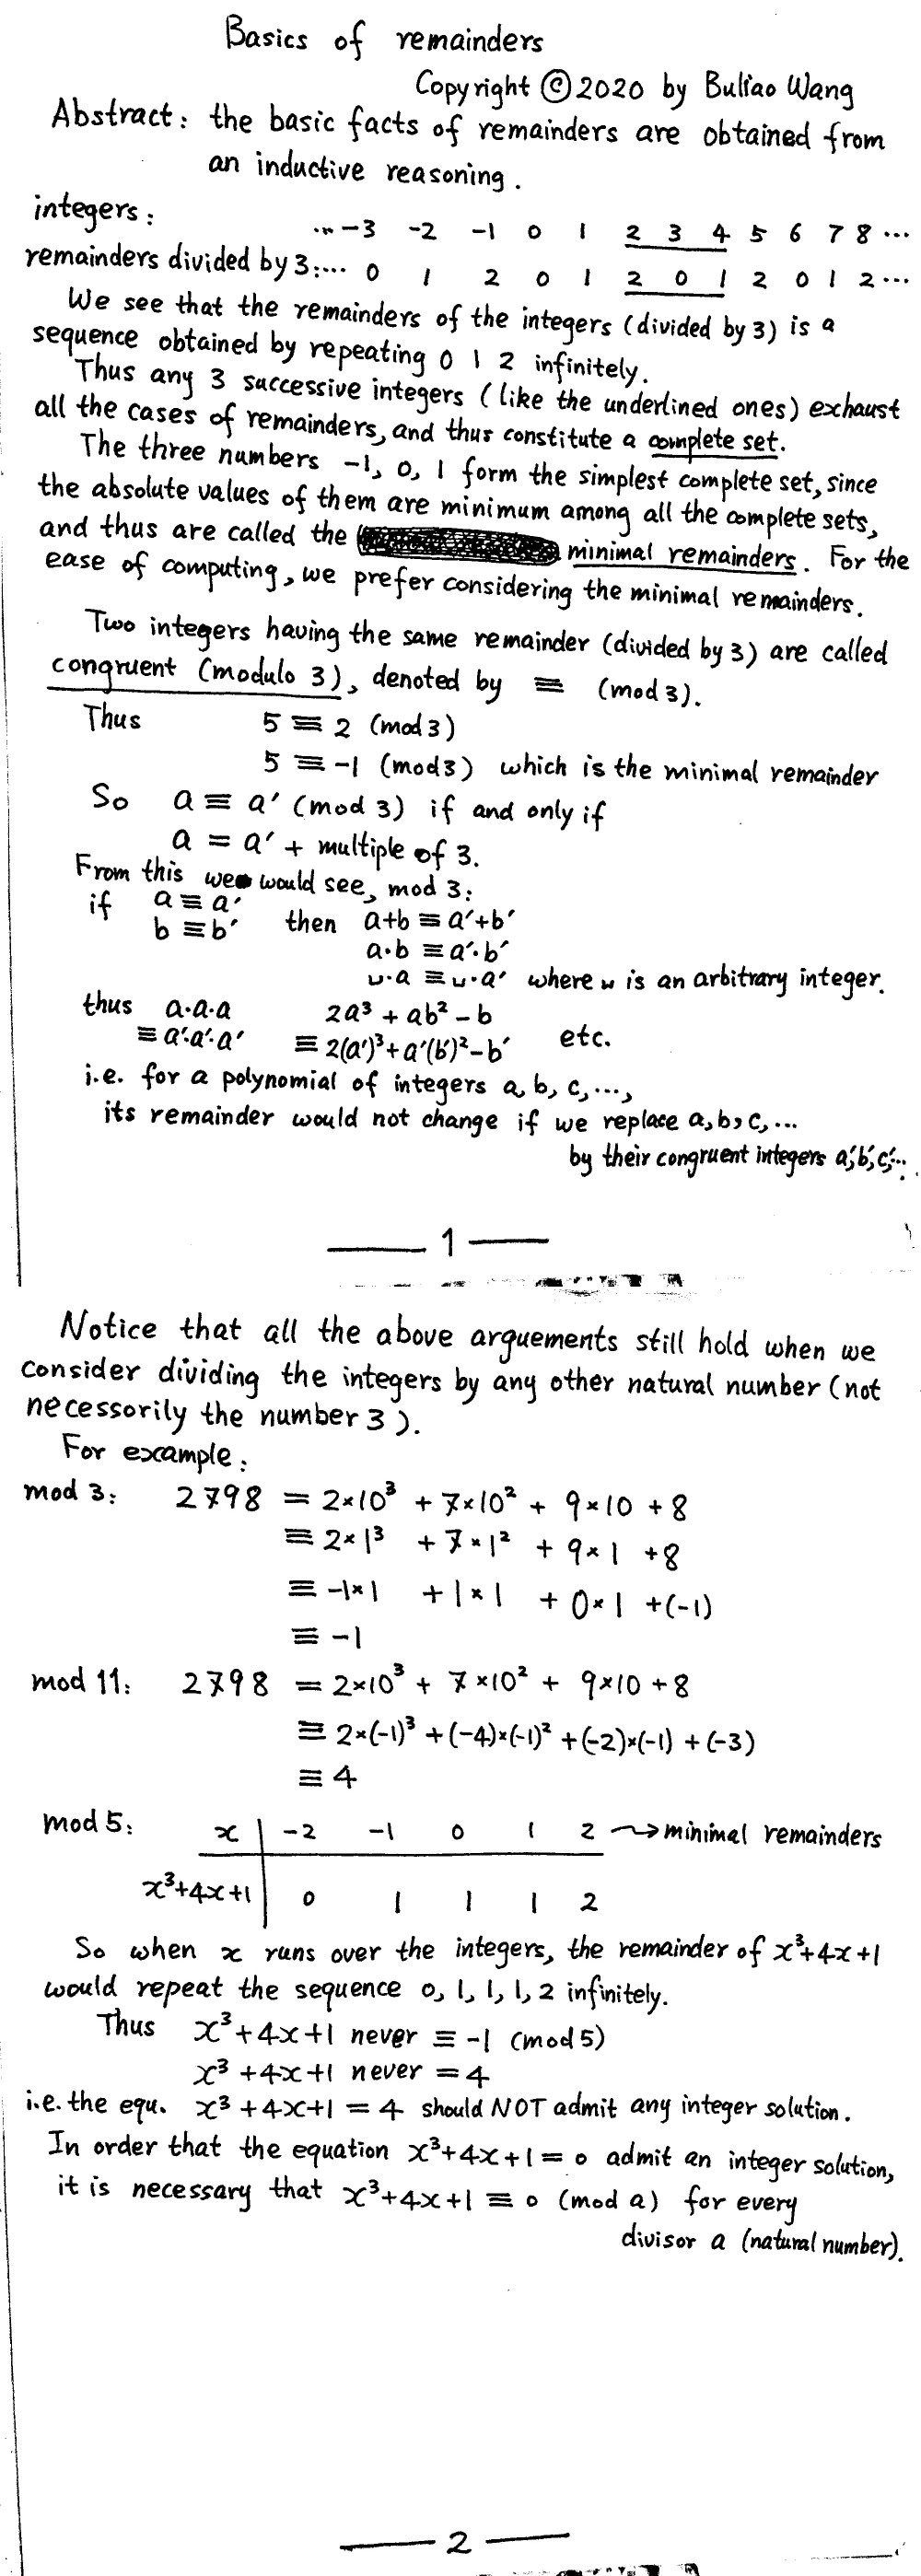 Basics of remainders
Copyright ©2020 by Buliao Wang
Abstract: the basic facts of remainders are obtained from
an inductive reasoning.
integers: ... -3 -2 -1 0 1 2 3 4 5 6 7 8 ...
remainders divided by 3: ... 0 1 2 0 1 2 0 1 2 0 1 2 ...
We see that the remainders of the integers (divided by 3) is a
sequence obtained by repeating 0 1 2 infinitely.
Thus any 3 successive integers (like the underlined ones) exhaust
all the cases of remainders, and thus constitute a complete set.
The three numbers -1, 0, 1 form the simplest complete set, since
the absolute values of them are minimum among all the complete sets,
and thus are called the minimal remainders. For the
ease of computing, we prefer considering the minimal remainders.
Two integers having the same remainder (divided by 3) are called
congruent (modulo 3), denoted by ≡ (mod 3).
Thus 5 ≡ 2 (mod 3)
5 ≡ -1 (mod 3) which is the minimal remainder
So a ≡ a' (mod 3) if and only if
a = a' + multiple of 3.
From this we would see, mod 3:
if a ≡ a'
b ≡ b' then a+b ≡ a'+b'
a·b ≡ a'·b'
u·a ≡ u·a' where u is an arbitrary integer.
thus a·a·a 2a³ + ab² - b
≡ a'·a'·a' ≡ 2(a')³+a'(b')²-b' etc.
i.e. for a polynomial of integers a, b, c, ...,
its remainder would not change if we replace a, b, c, ...
by their congruent integers a', b', c', ...
1
Notice that all the above arguements still hold when we
consider dividing the integers by any other natural number (not
necessorily the number 3).
For example:
mod 3: 2798 = 2×10³ + 7×10² + 9×10 + 8
≡ 2×1³ + 7×1² + 9×1 + 8
≡ -1×1 + 1×1 + 0×1 + (-1)
≡ -1
mod 11: 2798 = 2×10³ + 7×10² + 9×10 + 8
≡ 2×(-1)³ + (-4)×(-1)² + (-2)×(-1) + (-3)
≡ 4
mod 5: x -2 -1 0 1 2 → minimal remainders
x³+4x+1 0 1 1 1 2
So when x runs over the integers, the remainder of x³+4x+1
would repeat the sequence 0, 1, 1, 1, 2 infinitely.
Thus x³+4x+1 never ≡ -1 (mod 5)
x³+4x+1 never = 4
i.e. the equ. x³+4x+1 = 4 should NOT admit any integer solution.
In order that the equation x³+4x+1 = 0 admit an integer solution,
it is necessary that x³+4x+1 ≡ 0 (mod a) for every
divisor a (natural number).
2